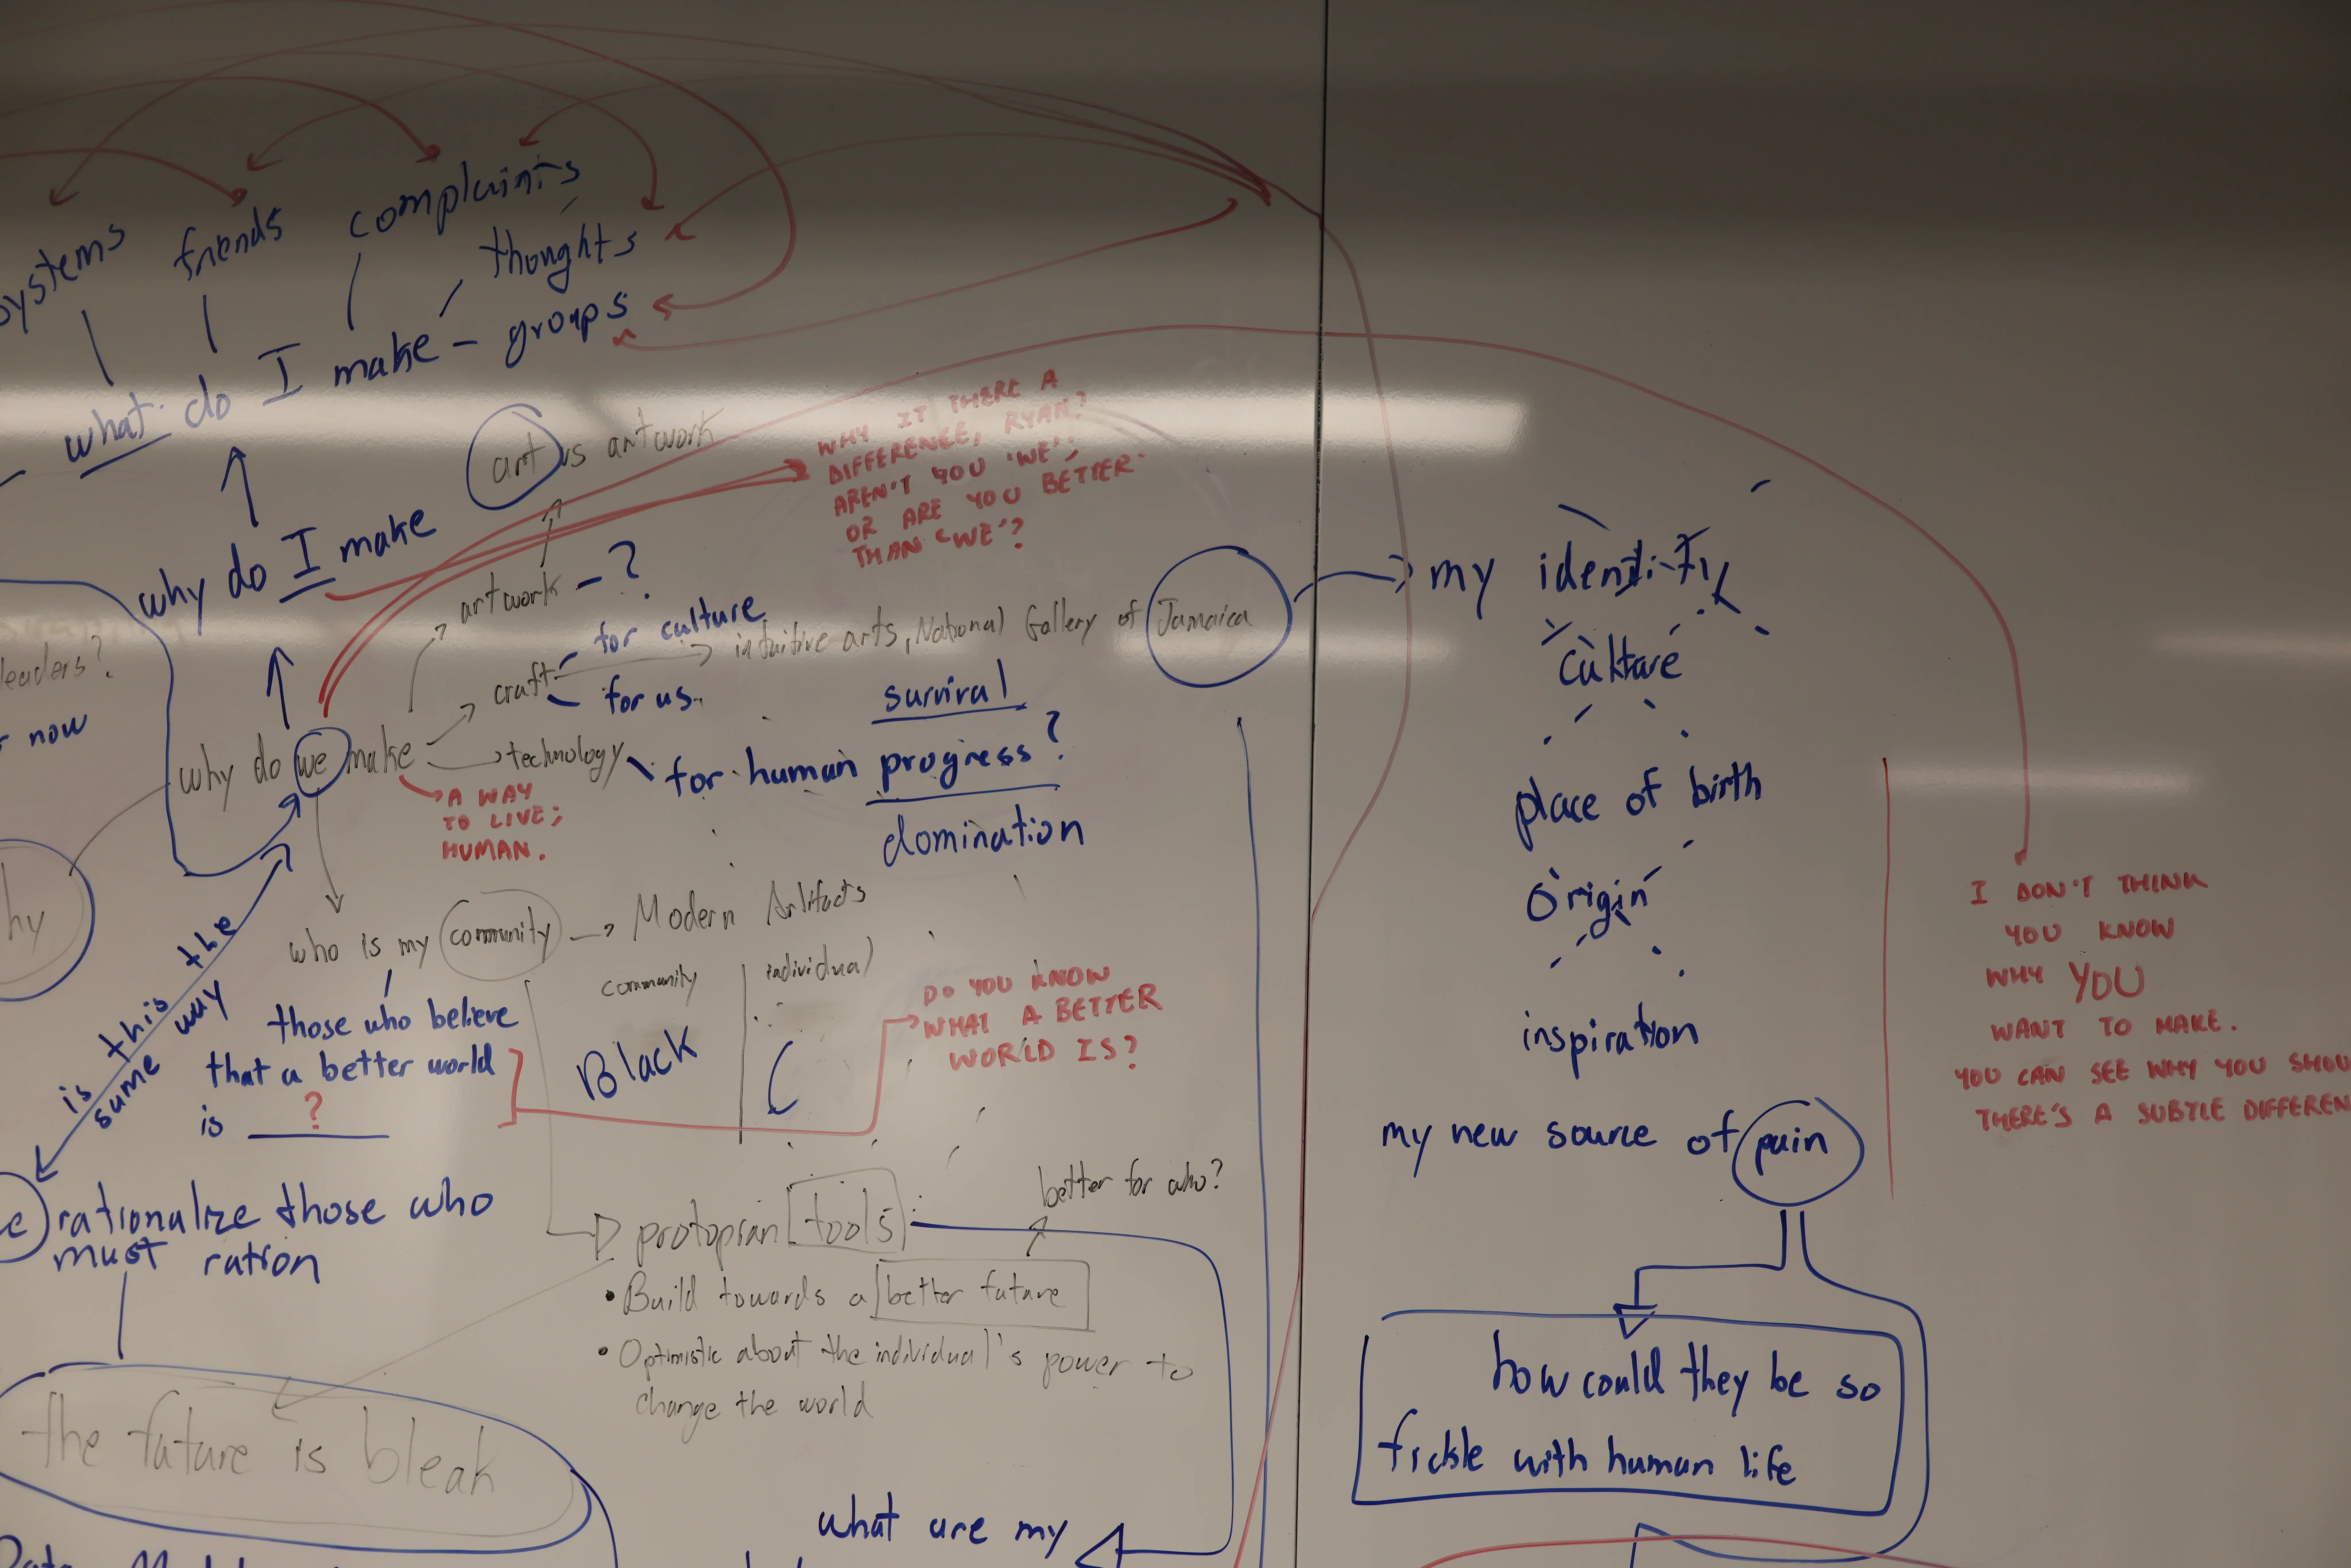 systems friends complaints
thoughts
what do I make - groups
art vs artwork
WHY IT THERE A
DIFFERENCE, RYAN?
AREN'T YOU 'WE',
OR ARE YOU BETTER
THAN 'WE'?
why do I make
artwork - ?
for culture
craft
intuitive arts, National Gallery of Jamaica
for us.
leaders?
now
why do we make
technology
survival
for human progress?
domination
A WAY
TO LIVE;
HUMAN.
who is my community
Modern Artifacts
community individual
Black
is this the
same way
those who believe
that a better world
is ?
DO YOU KNOW
WHAT A BETTER
WORLD IS?
rationalize those who
must ration
protopian tools
better for who?
• Build towards a better future
• Optimistic about the individual's power to
change the world
the future is bleak
what are my
my identity
culture
place of birth
origin
inspiration
my new source of pain
how could they be so
fickle with human life
I DON'T THINK
YOU KNOW
WHY YOU
WANT TO MAKE.
YOU CAN SEE WHY YOU SHOU
THERE'S A SUBTLE DIFFEREN